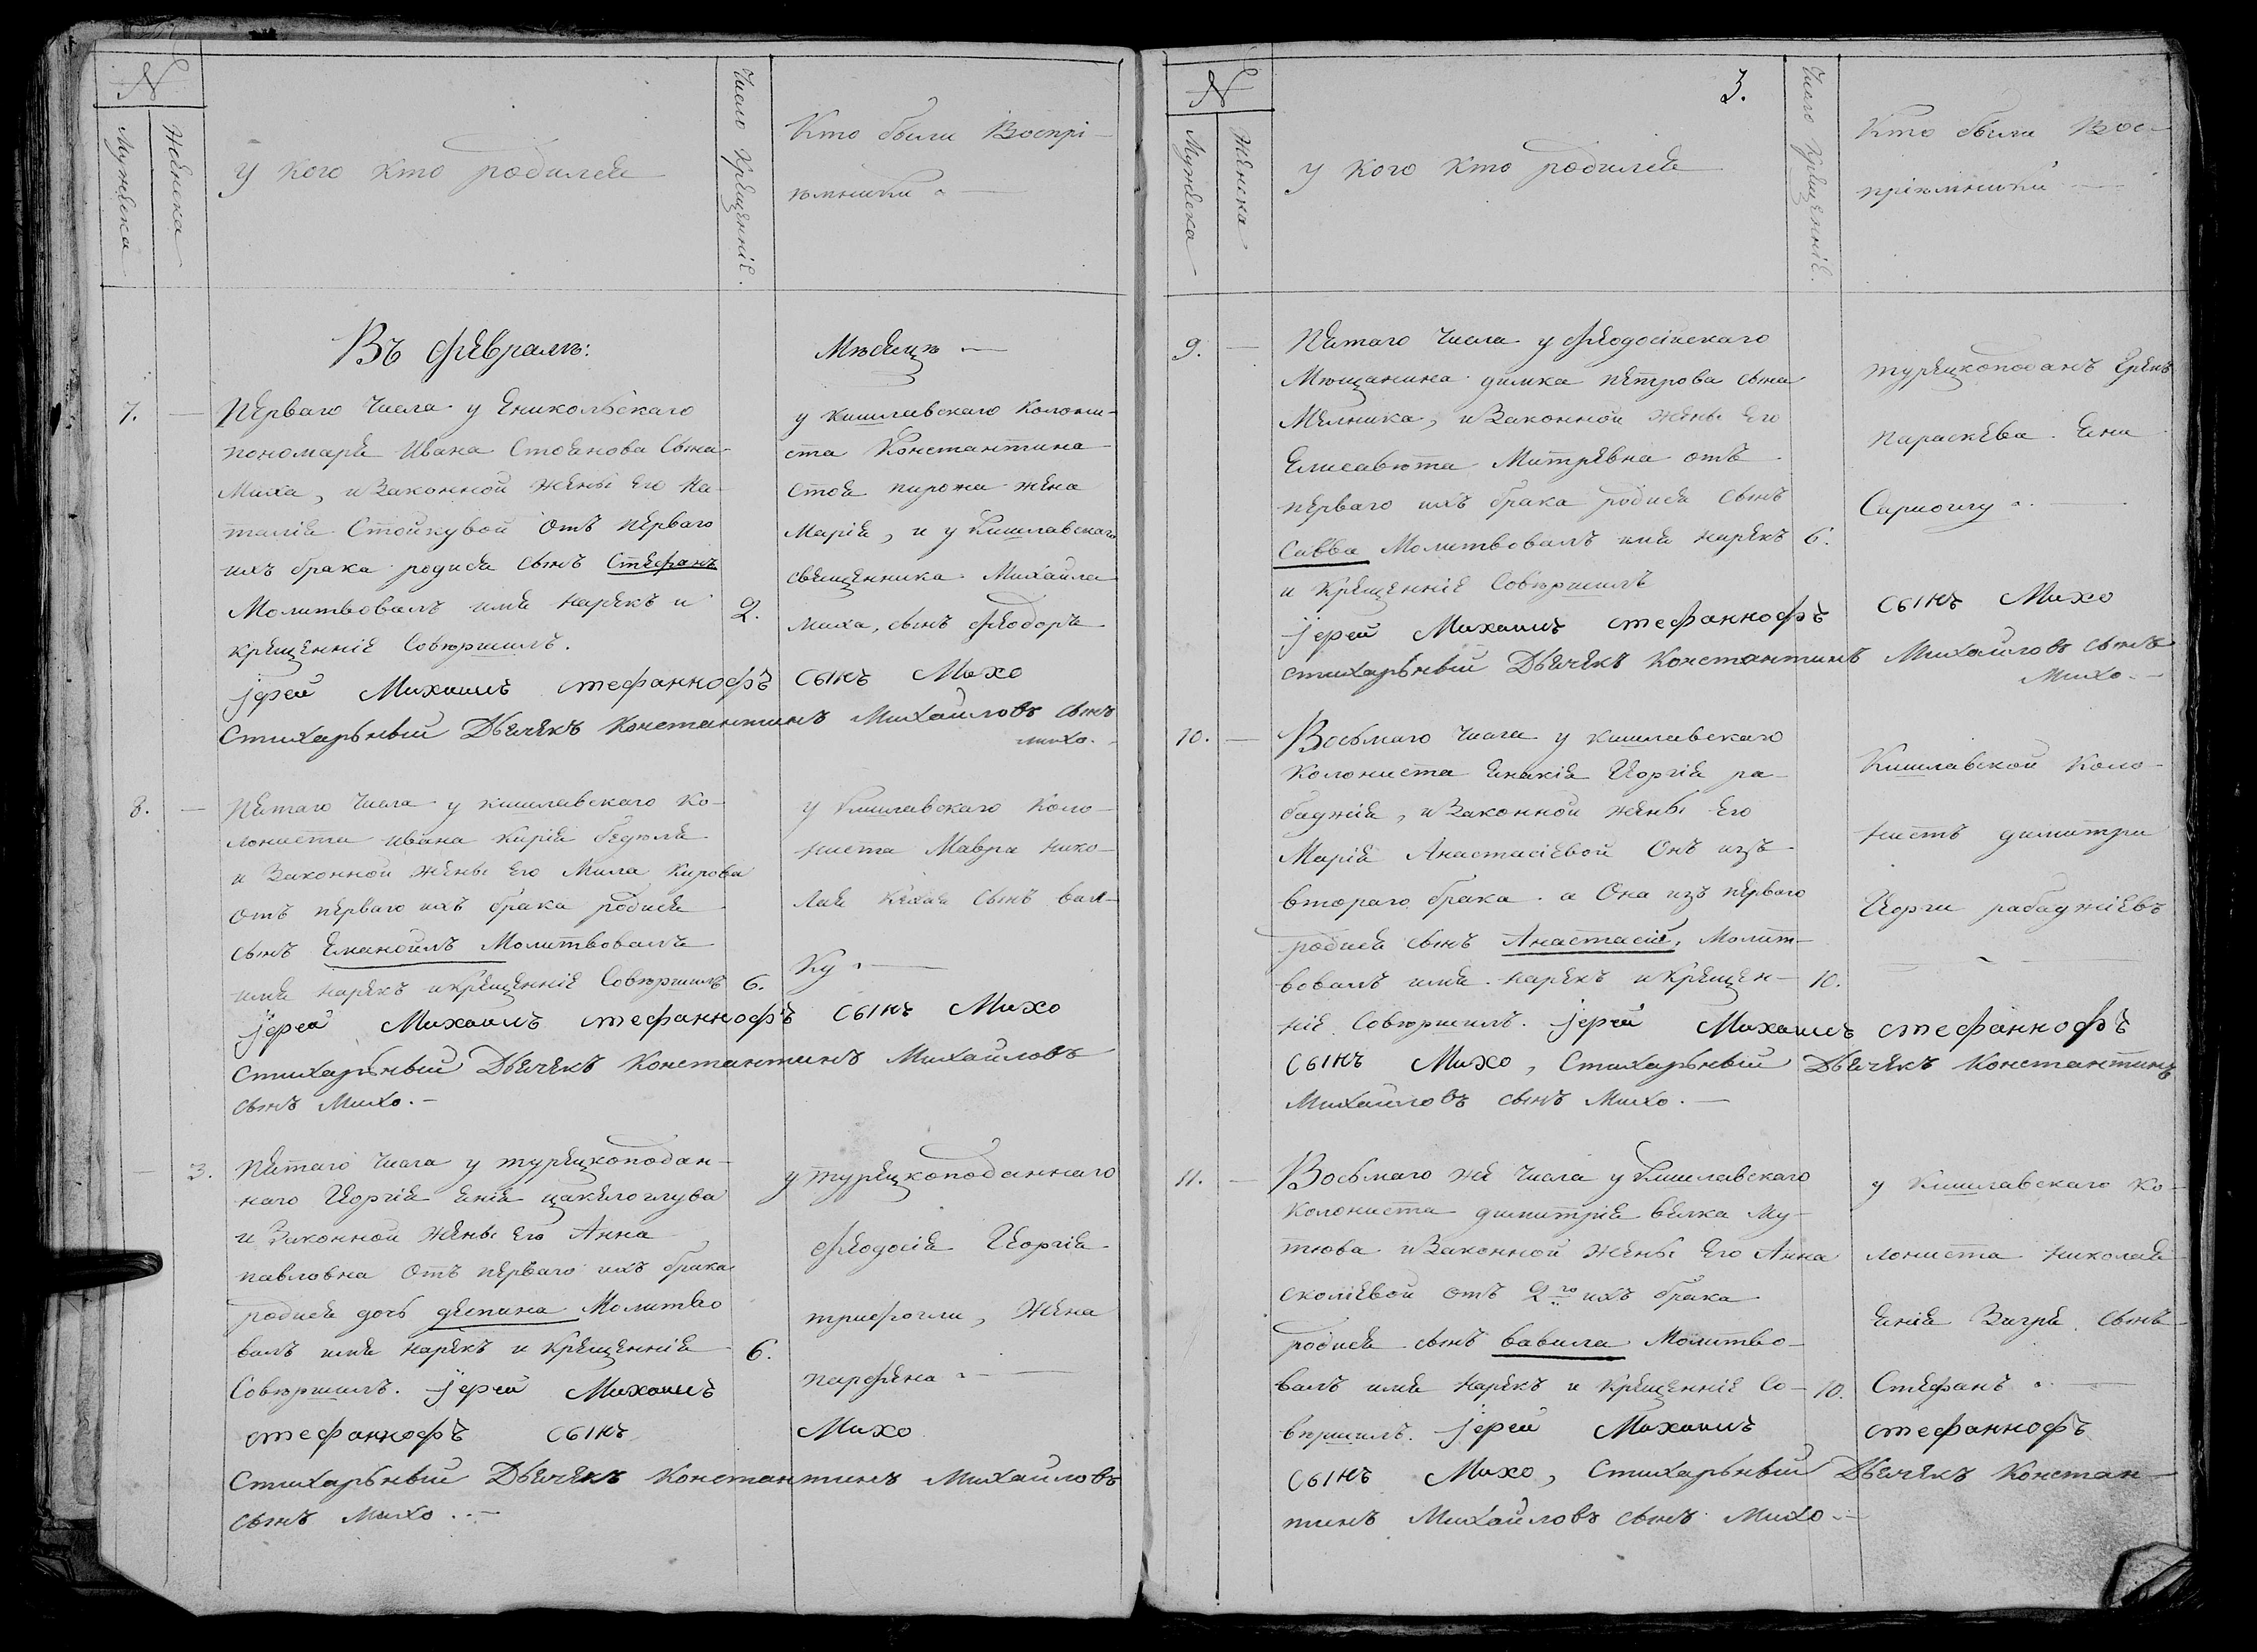 №
Мужеска
Женска
У кого кто родился
Число Крещенніе.
Кто были Воспрі-
ѣмники
Въ февралѣ:
Мѣсяцѣ
7.
Перваго числа у Еникольскаго
пономаря Ивана Стоянова Сына
Миха, и Законной жены Его На-
талія Стойкувой Отъ перваго
ихъ брака родися сынъ Стефанъ
Молитвовалъ имя нарекъ и
2.
крещенніе Совершилъ.
у кишлавскаго колони-
ста Константина
Стоя пирожа жена
Марія, и у Кишлавскаго
священника Михаила
миха, сынъ Феодоръ
іерей Михаилъ стефаннофъ сынъ Михо
Стихарьный Дьячекъ Константинъ Михайловъ сынъ
михо.
8.
Пятаго числа у кишлавскаго ко-
лониста ивана Кирія
и Законной жены Его Мила Кирова
отъ перваго ихъ брака родися
сынъ Еманоилъ Молитвовалъ
имя нарекъ и крещенніе Совѣршилъ
6.
у Кишлавскаго коло-
ниста Мавра Нико-
лая Кехая сынъ вал-
ку
іерей Михаилъ стефаннофъ сынъ Михо
Стихарьный Дьячекъ Константинъ Михайловъ
сынъ Михо.
3.
Пятаго числа у турецкоподан-
наго Георгія Янія
и Законной жены Его Анна
павловна Отъ перваго ихъ брака
родися дочь деспина Молитво
валъ имя нарекъ и Крещенніе
6.
Совѣршилъ. іерей Михаилъ
стефаннофъ сынъ Михо
у турецкоподаннаго
Феодосія Георгія
трифогли, Жена
парфена
Стихарьный Дьячекъ Константинъ Михайловъ
сынъ Михо.
3.
№
Мужеска
Женска
У кого кто родился
Число Крещенніе.
Кто были Вос-
пріѣмники
9.
Пятаго числа у Феодосійскаго
Мѣщанина димка петрова сына
Мелника, и Законной жены Его
Елисавѣта Митревна отъ
перваго ихъ брака родися сынъ
Савва Молитвовалъ имя нарекъ
6.
и Крещенніе Совѣршилъ
турецкоподанъ
параскева Яни
іерей Михаилъ стефаннофъ сынъ Михо
стихарьный Дьячекъ Константинъ Михайловъ сынъ
Михо.
10.
Восьмаго числа у кишлавскаго
Колониста Георгія ра-
баджія, и Законной жены Его
Марія Анастасіевой Онъ изъ
втораго брака. а Она изъ перваго
родися сынъ Анастасій, Молит-
вовалъ имя нарекъ и Крещен-
10.
ніе Совѣршилъ. іерей Михаилъ стефаннофъ
Кишлавской Коло-
нистъ димитри
Иорги рабаджіевъ
сынъ Михо, Стихарьный Дьячекъ Константинъ
Михайловъ сынъ Михо.
11.
Восьмаго же числа у Кишлавскаго
Колониста димитрія велка Му-
тюва и Законной жены Его Анна
отъ 2го ихъ брака
родися сынъ вавила Молитво-
валъ имя нарекъ и Крещенніе Со-
10.
вѣршилъ. іерей Михаилъ стефаннофъ
у Кишлавскаго ко-
лониста николая
Янія сынъ
Стефанъ
сынъ Михо, Стихарьный Дьячекъ Констан-
тинъ Михайловъ сынъ Михо